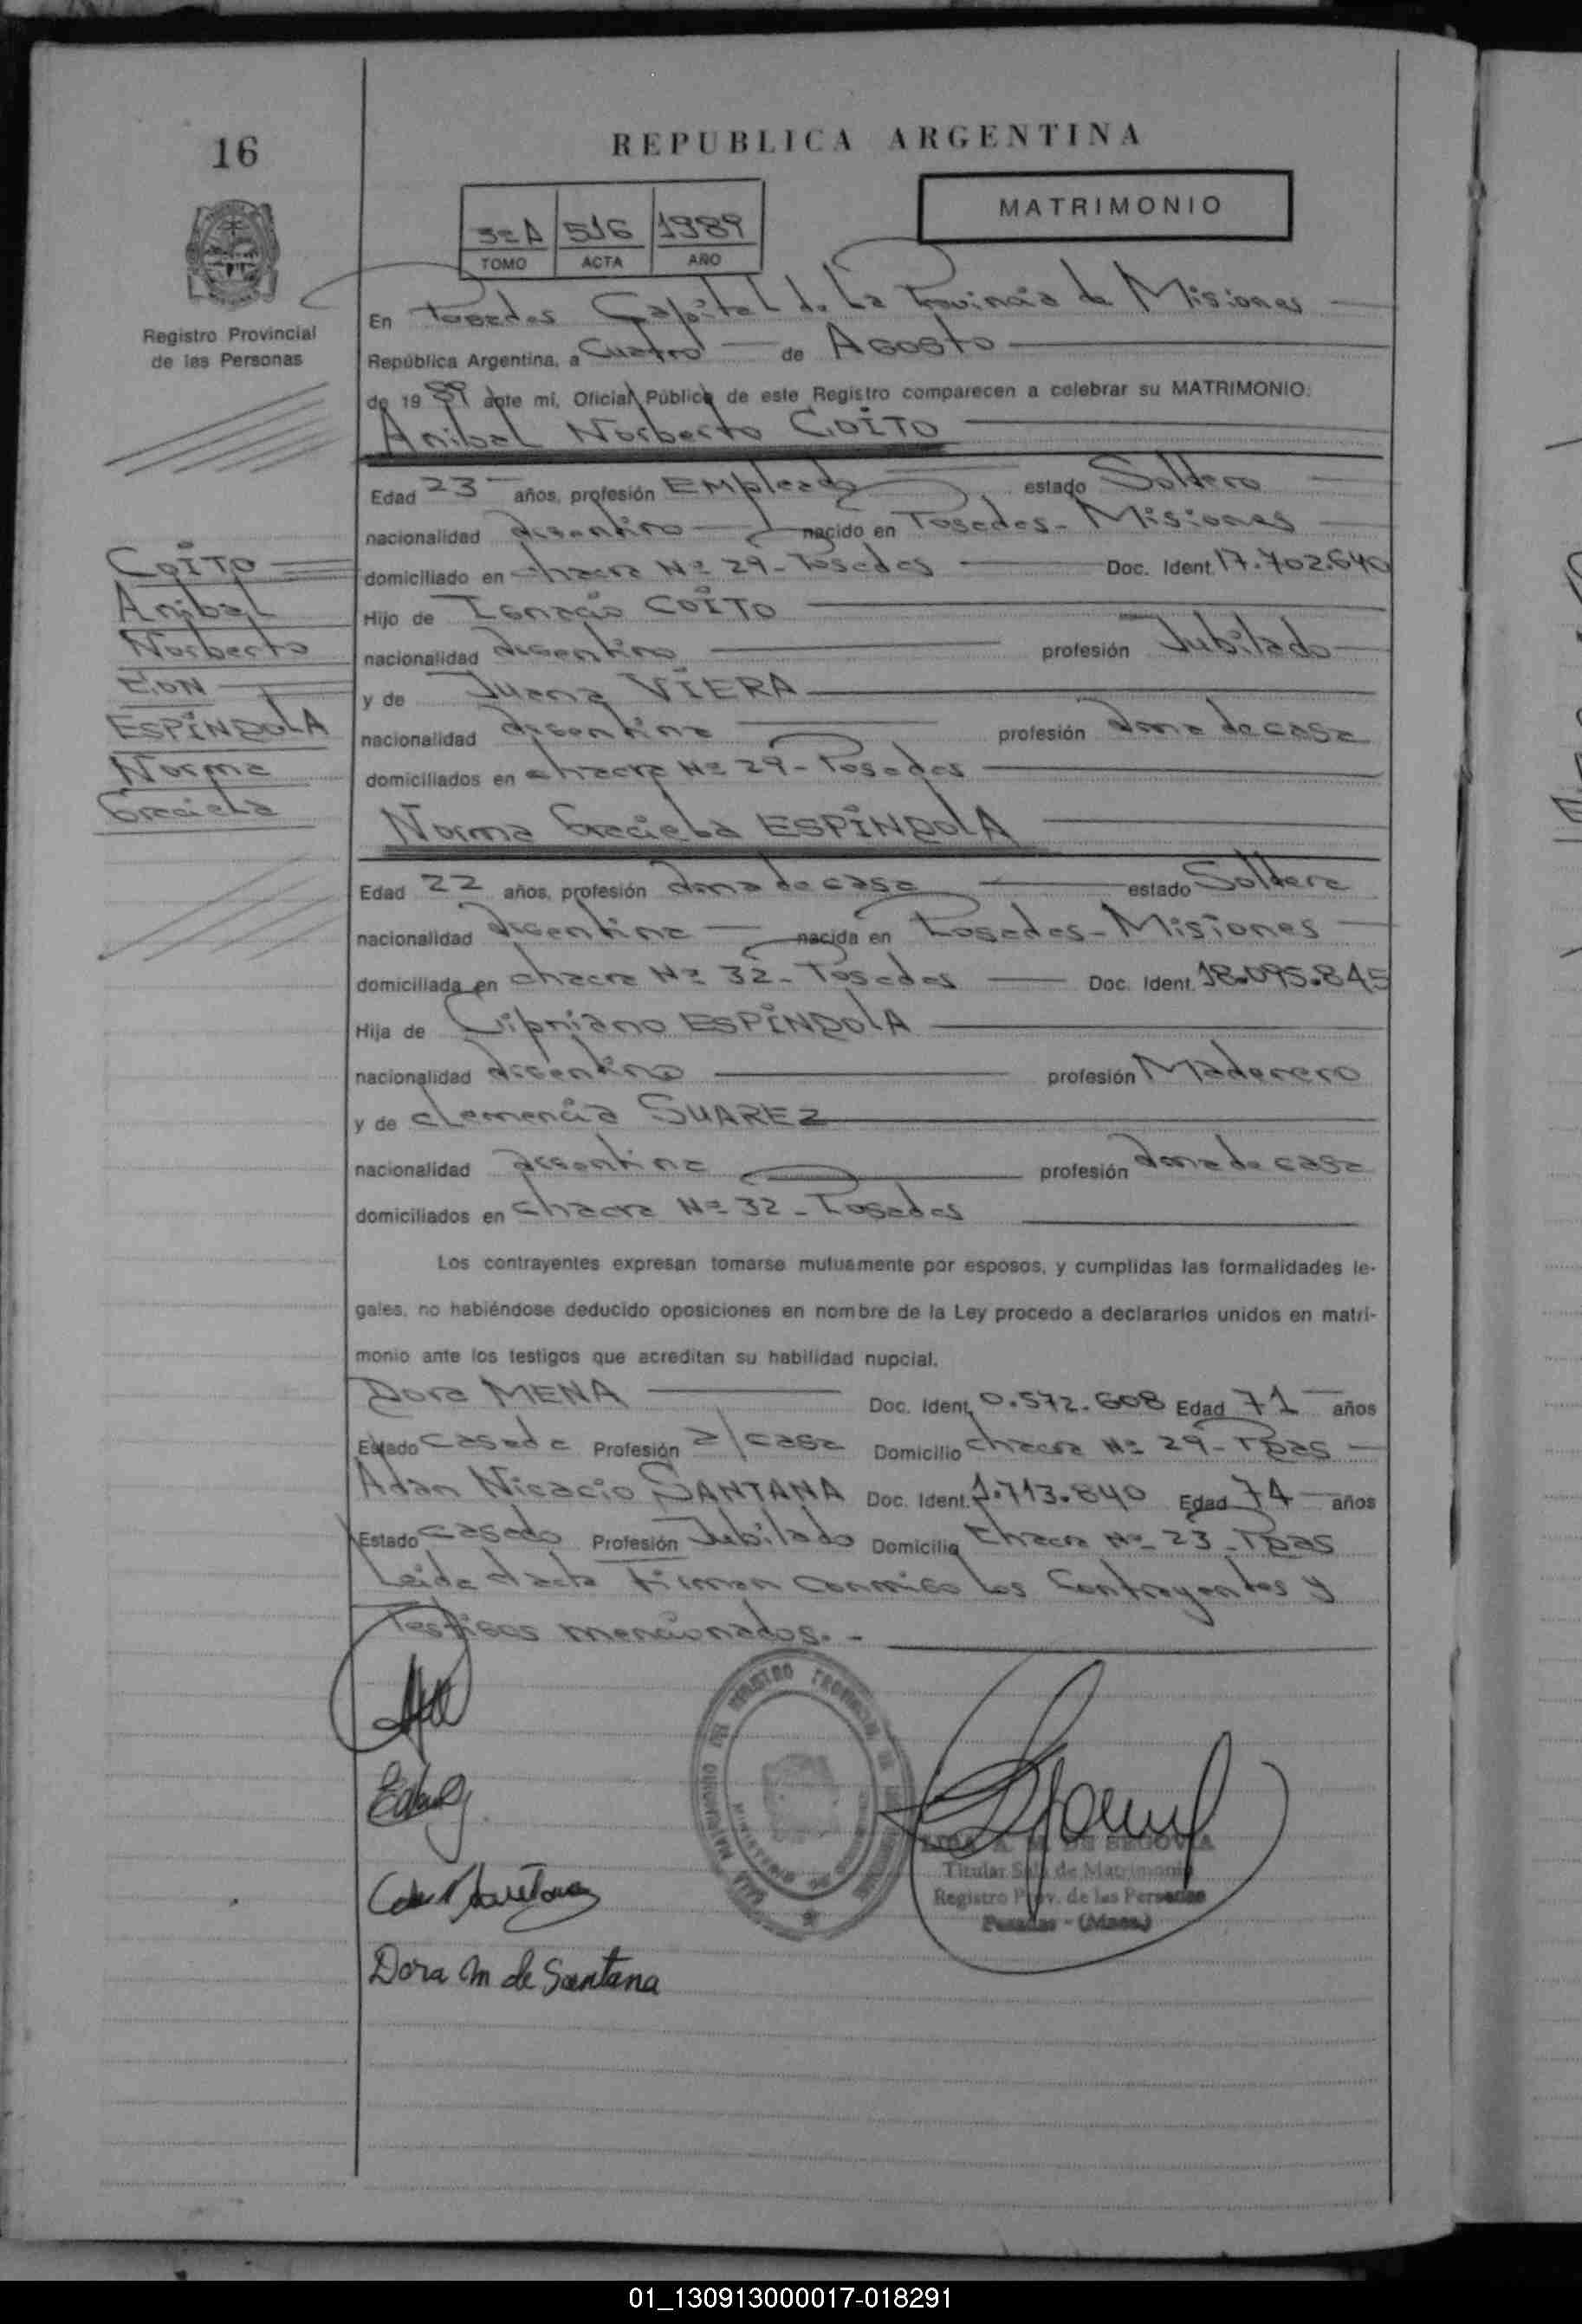 16
REPUBLICA ARGENTINA
MATRIMONIO
3º A 516 1989
TOMO ACTA AÑO
Registro Provincial
de las Personas
En Posadas Capital de La Provincia de Misiones
República Argentina, a Cuatro de Agosto
de 19 89 ante mí, Oficial Público de este Registro comparecen a celebrar su MATRIMONIO:
Anibal Norberto COITO
Edad 23 años, profesión Empleado estado Soltero
nacionalidad Argentino nacido en Posadas - Misiones
domiciliado en chacra Nº 29 - Posadas Doc. Ident. 17.702.640
Hijo de Ignacio COITO
nacionalidad Argentino profesión Jubilado
y de Juana VIERA
nacionalidad Argentina profesión Ama de casa
domiciliados en chacra Nº 29 - Posadas
COITO
Anibal
Norberto
CON
ESPINDOLA
Norma
Graciela
Norma Graciela ESPINDOLA
Edad 22 años, profesión Ama de casa estado Soltera
nacionalidad Argentina nacida en Posadas - Misiones
domiciliada en chacra Nº 32 - Posadas Doc. Ident. 18.095.845
Hija de Cipriano ESPINDOLA
nacionalidad Argentino profesión Maderero
y de Clemencia SUAREZ
nacionalidad Argentina profesión Ama de casa
domiciliados en chacra Nº 32 - Posadas
Los contrayentes expresan tomarse mutuamente por esposos, y cumplidas las formalidades le-
gales, no habiéndose deducido oposiciones en nombre de la Ley procedo a declararlos unidos en matri-
monio ante los testigos que acreditan su habilidad nupcial.
Dora MENA Doc. Ident. 0.572.608 Edad 71 años
Estado Casada Profesión a/casa Domicilio chacra Nº 29 - Pdas
Adan Nicacio SANTANA Doc. Ident. 1.713.840 Edad 74 años
Estado Casado Profesión Jubilado Domicilio Chacra Nº 23 - Pdas
Leida el acta Firman conmigo los Contrayentes y
Testigos mencionados. -
REGISTRO PROVINCIAL DE LAS PERSONAS
MINISTERIO DE
SALA MATRIMONIO
DE SEGOVIA
Titular Sala de Matrimonio
Registro Prov. de las Personas
Posadas - (Mnes.)
Dora M de Santana
01_130913000017-018291